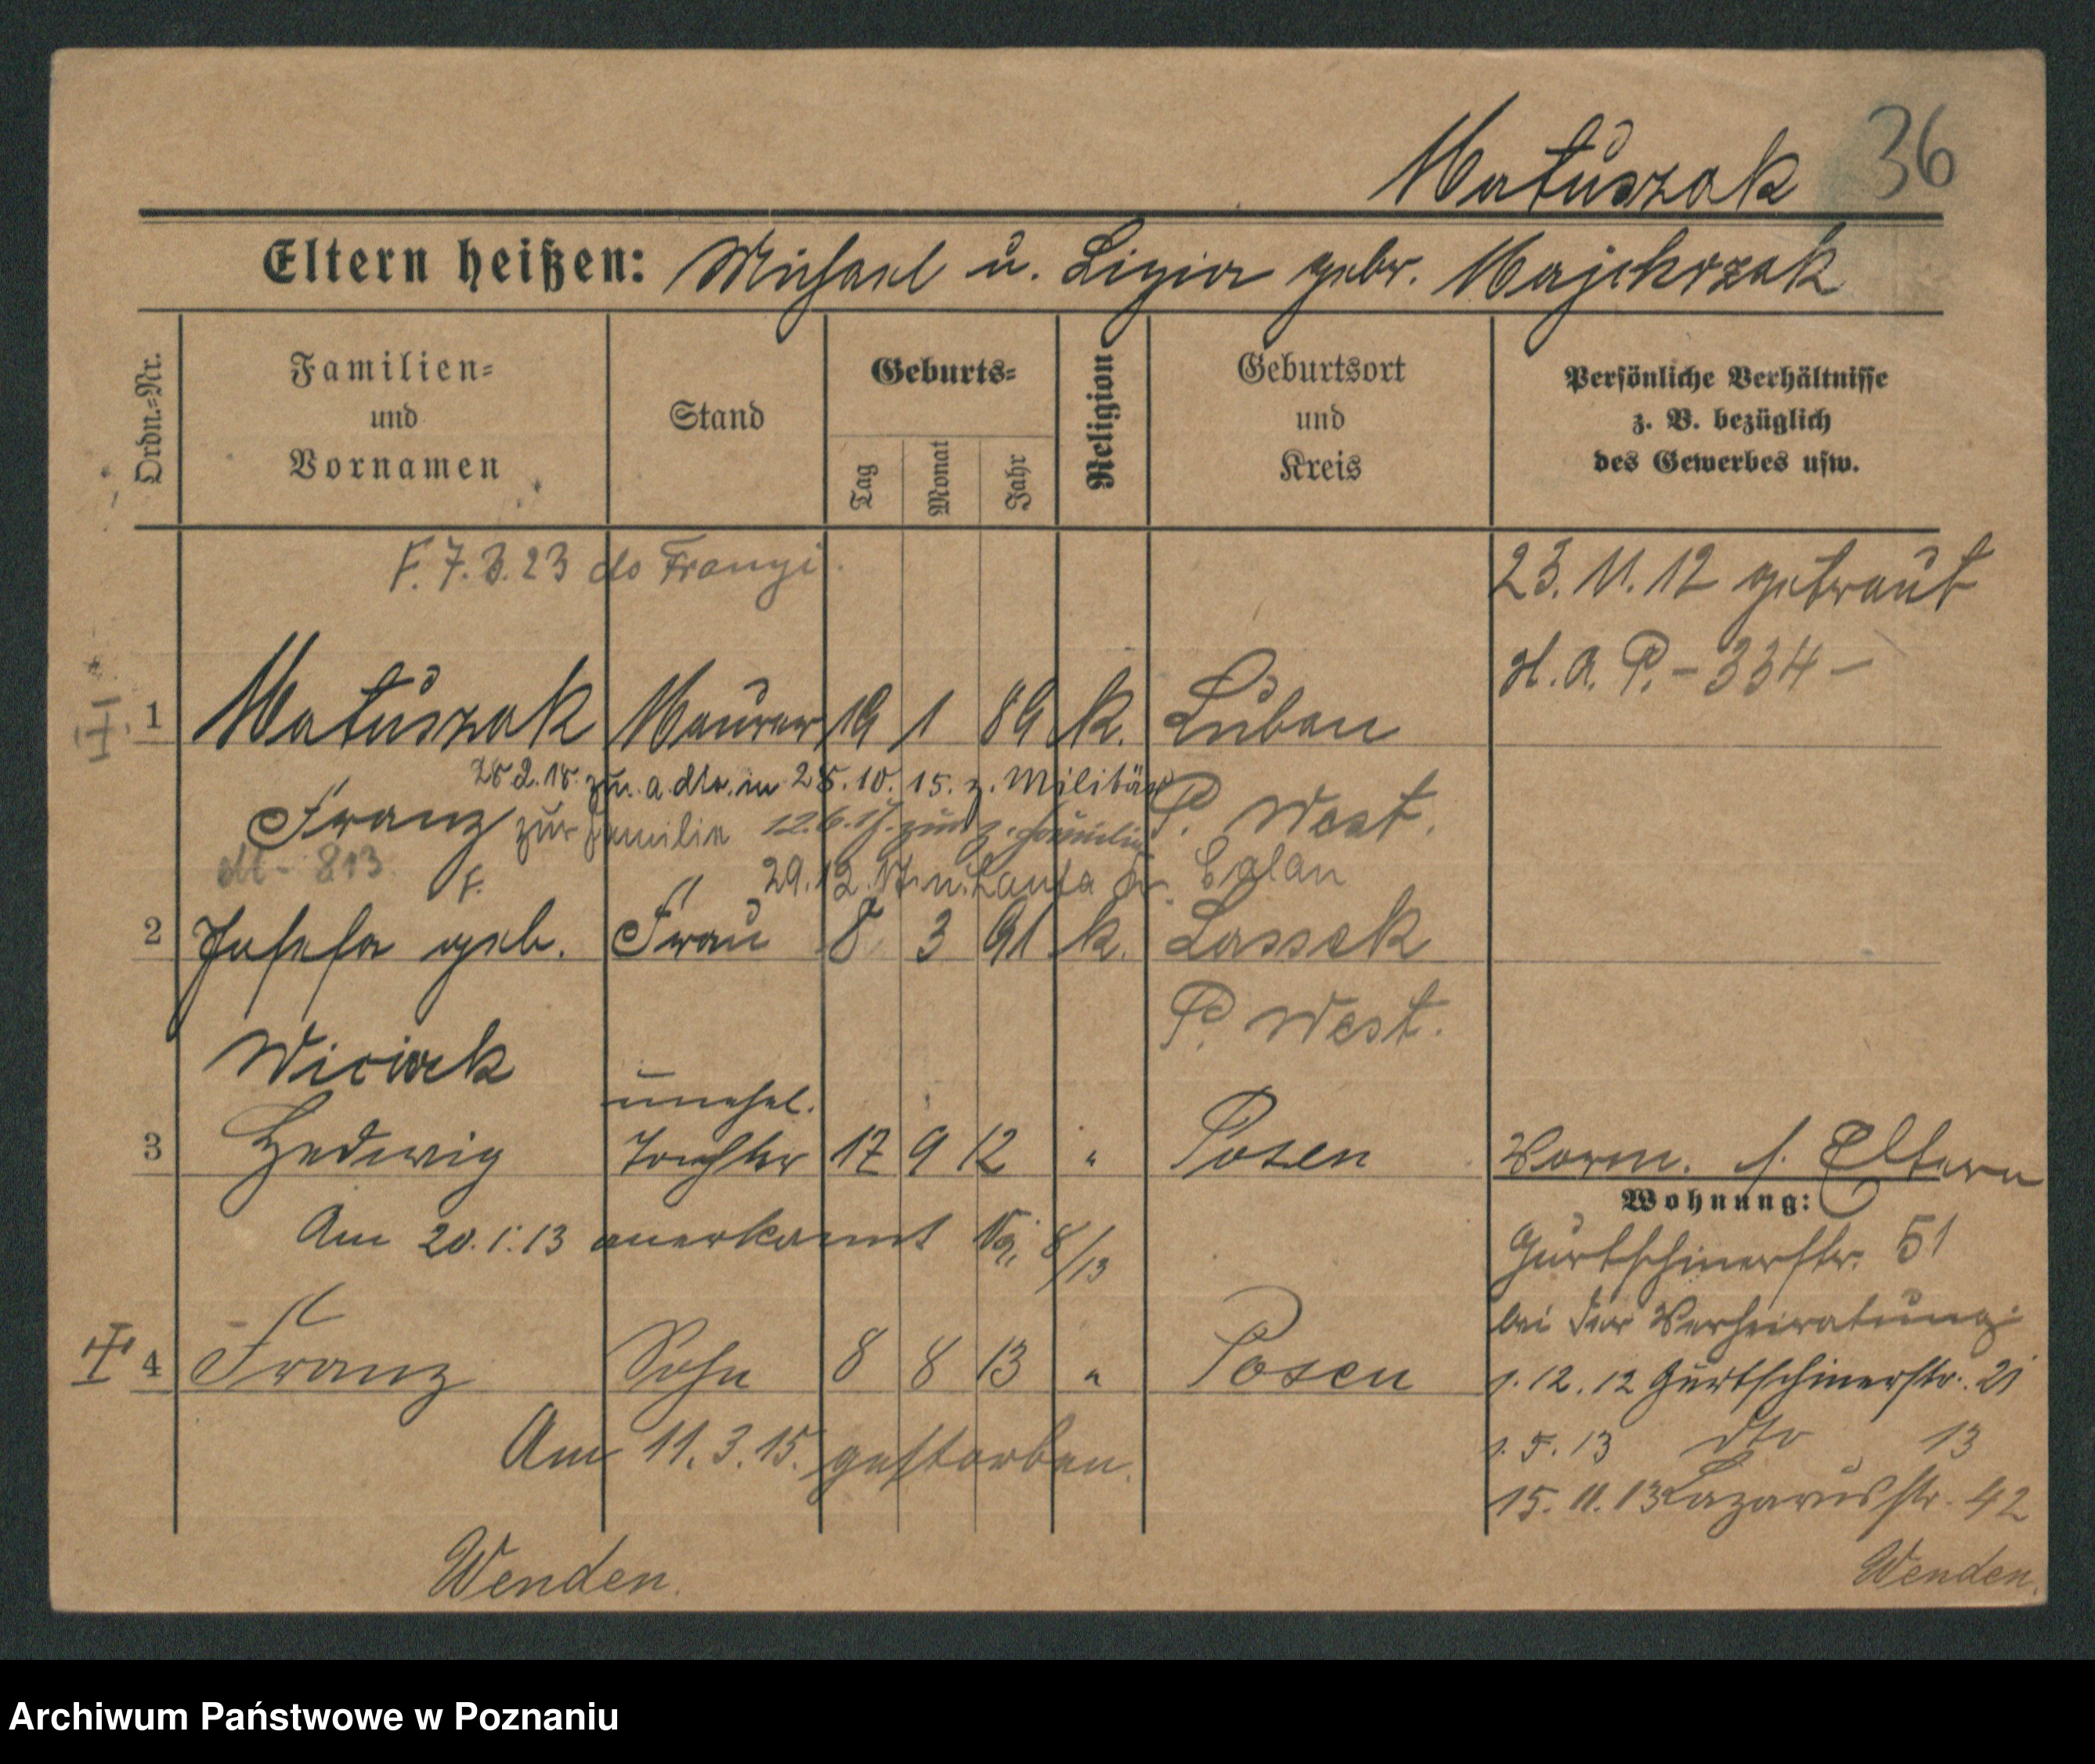 Matuszak 36
Eltern heißen: Michael u. Ligia gebr. Majchrzak
Ordn.-Nr.
Familien-
und
Vornamen
Stand
Geburts-
Tag
Monat
Jahr
Religion
Geburtsort
und
Kreis
Persönliche Verhältnisse
z. B. bezüglich
des Gewerbes usw.
F. 7.3.23 do Francyi
23. 11. 12 getraut
H. A. P. - 334 -
1 Matuszak Maurer 19 1 89 k. Luban
28.2.18. zu. a. dto. in 28. 10. 15. z. Militär
Franz zur Familie 12.6.17. zur z. Familie P. West.
29.12.17. n. Lauta Kr. Calau
2 Josefa geb. Frau 8 3 91 k. Lassek
P. West.
Wiciak
3 Hedwig unehel. Tochter 17 9 12 " Posen
Vorm. s. Eltern
Am 20.1.13 anerkannt 8/13
Wohnung:
Gurtschinerstr. 51
bei der Verheiratung:
1. 12. 12 Gurtschinerstr. 21
4 Franz Sohn 8 8 13 " Posen
1. 5. 13 dto 13
Am 11. 3. 15. gestorben.
15. 11. 13 Lazarusstr. 42
Wenden.
Wenden.
Archiwum Państwowe w Poznaniu